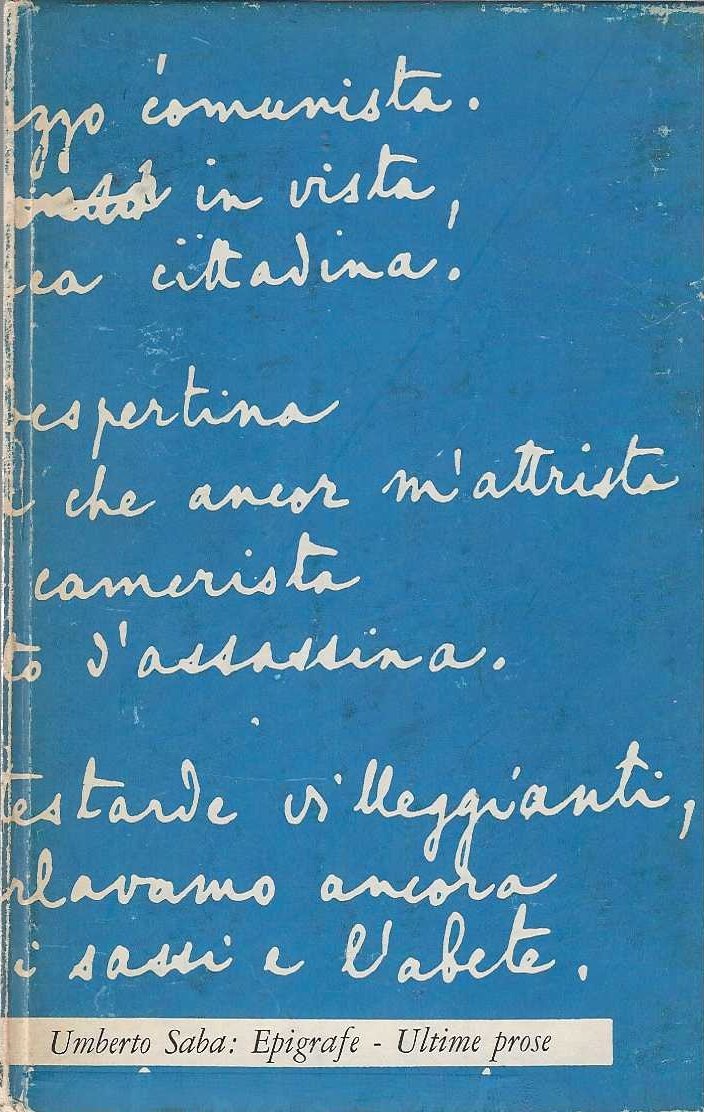 zzo comunista.
in vista,
cittadina.
vespertina
che ancor m'attrista
camerista
to d'assassina.
testarde villeggianti,
rlavamo ancora
i sassi e l'abete.
Umberto Saba: Epigrafe - Ultime prose